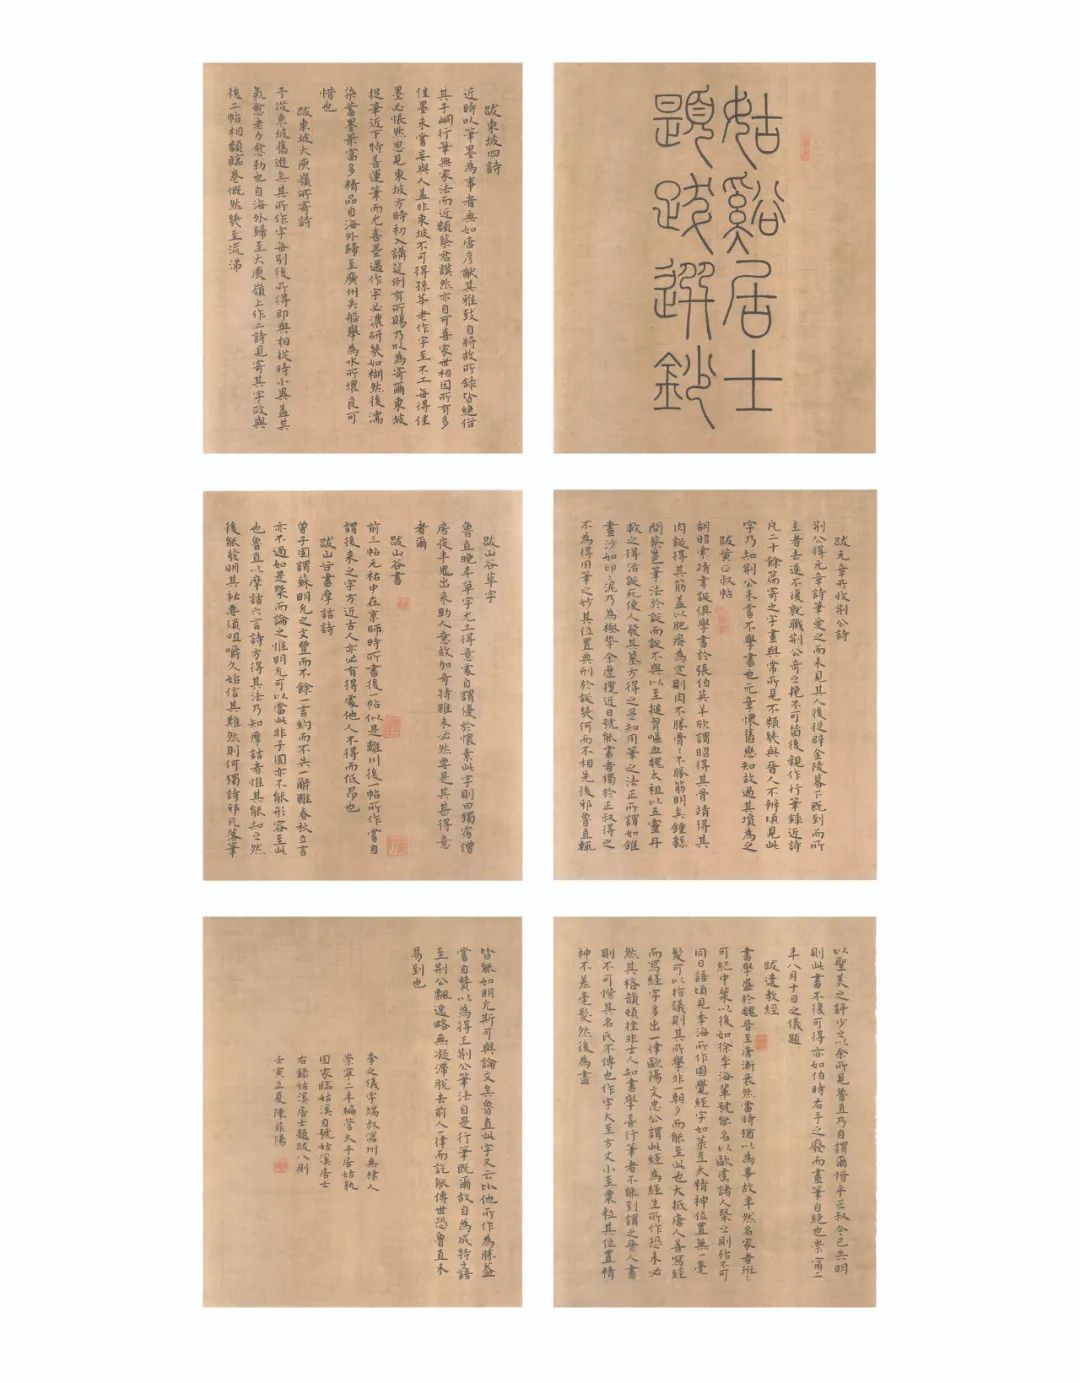 姑谿居士
題跋選鈔
跋東坡四詩
近時以筆墨為事者無如唐彥猷其雅致自將故所錄皆絕俗
其子坰行筆無家法而近類蔡君謨然亦自可喜家世相因所有多
佳墨未嘗妄與人蓋非東坡不可得孫莘老作字至不工每得佳
墨必悵然思見東坡方時初入講筵例有所賜乃以為寄爾東坡
捉筆近下特善運筆而尤喜墨遇作字必濃研幾如糊然後濡
染蓄墨最富多精品自海外歸至廣州失船舉為水所壞良可
惜也
跋東坡大庾嶺所寄詩
予從東坡舊遊矣其所作字每別後所得即與相從時小異蓋其
氣愈老力愈勁也自海外歸至大庾嶺上作二詩見寄其字政與
後二帖相類臨卷慨然幾至流涕
跋元章所收荆公詩
荆公得元章詩筆愛之而未見其人後從辟金陵幕下既到而所
主者去遂不復就職荆公奇之挽不可留後親作行筆錄近詩
凡二十餘篇寄之字畫與常所見不類幾與晉人不辨頃見此
字乃知荆公未嘗不學書也元章懷舊戀知故過其墳為之
跋黃正叔帖
胡昭索靖韋誕俱學書於張伯英羊欣謂昭得其骨靖得其
肉誕得其筋蓋以肥瘠為定則肉不勝骨骨不勝筋明矣鍾繇
問蔡邕筆法於誕而誕不與以至搥胷嘔血魏太祖以五靈丹
救之得活誕死使人發其墓方得之是知用筆之法正所謂如錐
畫沙如印印泥乃為極摯余歷攬近日號能書者獨於正叔得之
不為得用筆之妙其位置典刑於誕幾何而不相先後邪魯直輒
跋山谷草字
魯直晚年草字尤工得意處自謂優於懷素此字則曰獨宿僧
房夜半鬼出來助人意故加奇特雖未必然要是其甚得意
者爾
跋山谷書
前三帖元祐中在京師時所書後一帖似是離川後一帖所作嘗自
謂後來之字方近古人亦必有得處他人不得而低昂也
跋山谷書摩詰詩
曾子固謂蘇明允之文豐而不餘一言約而不失一辭雖春秋立言
亦不過如是槩而論之惟明允可以當此非子固亦不能形容至此
也魯直以摩詰六言詩方得其法乃知摩詰者惟其能知之然
後能發明其祕要須咀嚼久始信其難然則何獨詩邪凡落筆
以聖美之評少之以余所見魯直乃自謂爾惜乎正叔今已失明
則此書不復可得亦如伯時右手之廢而畫筆自絕也崇寧二
年八月十日之儀題
跋遺教經
書學盛於魏晉至唐漸衰然當時猶以為事故卓然名家者班班
可紀中葉以後如徐季海輩號能名以歐虞諸人槩之則殆不可
同日語頃見李海所作圓覺經字如菉豆大精神位置無一毫
髮可以指議則其所學非一朝夕而能至此也大抵唐人善寫經
而寫經字多出一律歐陽文忠公謂此經為經生所作恐未必
然其格韻頓挫非士人知書學善行筆者不能到謂之晉人書
則不可惜其名氏不傳也作字大至方丈小至粟粒其位置精
神不差毫髮然後為盡
皆能如明允斯可與論文矣魯直此字又云比他所作為勝蓋
嘗自贊以為得王荆公筆法自是行筆既爾故自為成特之語
至荆公飄逸略無凝滯脫去前人一律而訖能傳世恐魯直未
易到也
李之儀字端叔滄州無棣人
崇寧二年編管太平居姑孰
因家臨姑溪自號姑溪居士
右錄姑溪居士題跋八則
壬寅立夏陳菲陽